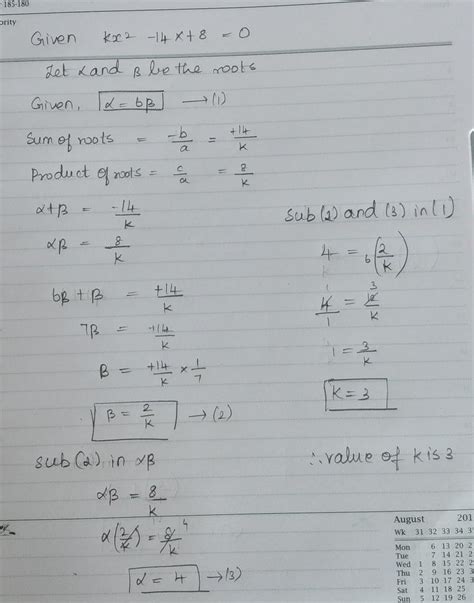 185-180
ority
Given kx² -14x+8 = 0
Let α and β be the roots
Given, α = 6β → (1)
Sum of roots = -b/a = +14/k
Product of roots = c/a = 8/k
α+β = -14/k
αβ = 8/k
6β + β = +14/k
7β = +14/k
β = +14/k × 1/7
β = 2/k → (2)
sub (2) in αβ
αβ = 8/k
α(2/k) = 8/k 4
α = 4 → (3)
sub (2) and (3) in (1)
4 = 6(2/k)
1 3
4/1 = 12/k
1 = 3/k
k = 3
∴ value of k is 3
August 201
Wk 31 32 33 34 35
Mon 6 13 20 2
Tue 7 14 21 2
Wed 1 8 15 22 2
Thu 2 9 16 23 3
Fri 3 10 17 24 3
Sat 4 11 18 25
Sun 5 12 19 26